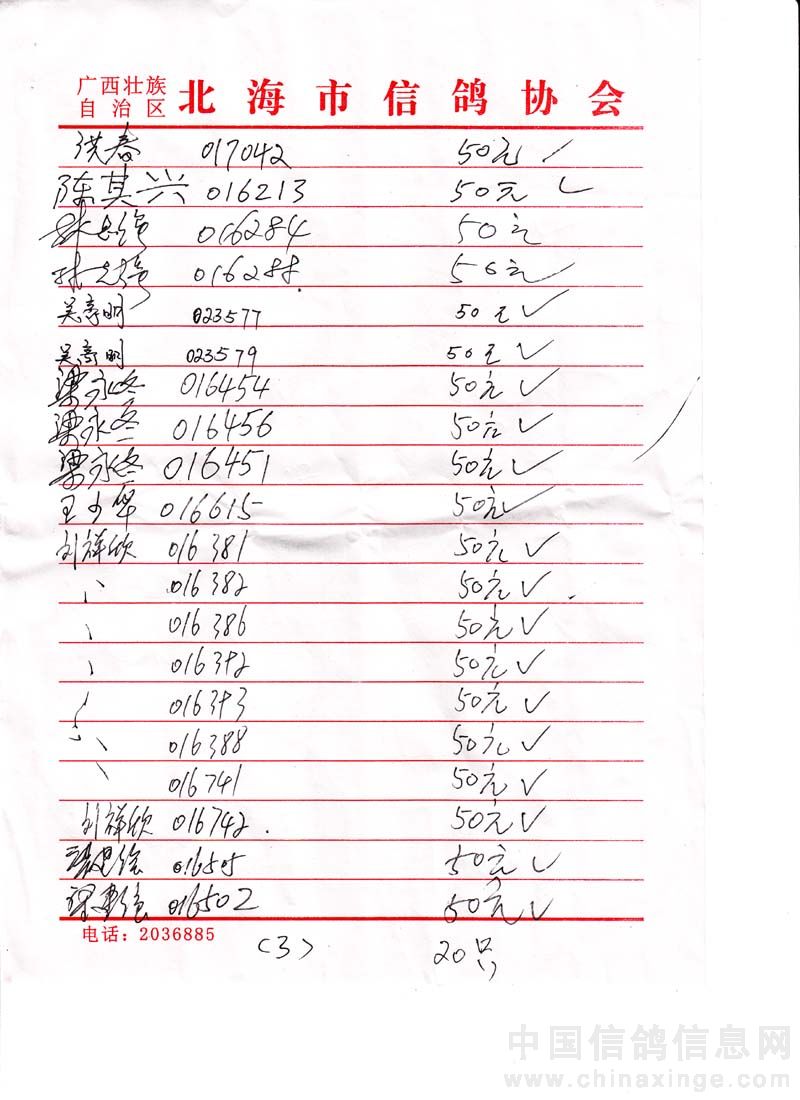 广西壮族
自治区
北海市信鸽协会
洪春 017042 50元 ✓
陈其兴 016213 50元 ✓
016284 50元
016288. 50元 ✓
023577 50元 ✓
023579 50元 ✓
梁永冬 016454 50元 ✓
梁永冬 016456 50元 ✓
梁永冬 016451 50元 ✓
王少华 016615 50元 ✓
刘祥欣 016381 50元 ✓
016382 50元 ✓
016386 50元 ✓
016392 50元 ✓
016393 50元 ✓
016388 50元 ✓
016741 50元 ✓
刘祥欣 016742. 50元 ✓
016505 50元 ✓
016502 50元 ✓
电话：2036885
(3) 20只
中国信鸽信息网
www.chinaxinge.com